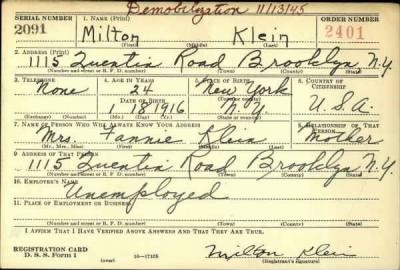 Demobilization 11/13/45
SERIAL NUMBER 1. NAME (Print) ORDER NUMBER
2091 Milton Klein 2401
(First) (Middle) (Last)
2. ADDRESS (Print)
1115 Quentin Road Brooklyn N.Y.
(Number and street or R. F. D. number) (Town) (County) (State)
3. TELEPHONE 4. AGE IN YEARS 5. PLACE OF BIRTH 6. COUNTRY OF CITIZENSHIP
None 24 New York
DATE OF BIRTH (Town or county)
1 18 1916 N.Y. U.S.A.
(Exchange) (Number) (Mo.) (Day) (Yr.) (State or country)
7. NAME OF PERSON WHO WILL ALWAYS KNOW YOUR ADDRESS 8. RELATIONSHIP OF THAT PERSON
Mrs. Fannie Klein Mother
(Mr., Mrs., Miss) (First) (Middle) (Last)
9. ADDRESS OF THAT PERSON
1115 Quentin Road Brooklyn N.Y.
(Number and street or R. F. D. number) (Town) (County) (State)
10. EMPLOYER'S NAME
Unemployed
11. PLACE OF EMPLOYMENT OR BUSINESS
(Number and street or R. F. D. number) (Town) (County) (State)
I AFFIRM THAT I HAVE VERIFIED ABOVE ANSWERS AND THAT THEY ARE TRUE.
REGISTRATION CARD Milton Klein
D. S. S. Form 1 (over) 16—17105 (Registrant's signature)